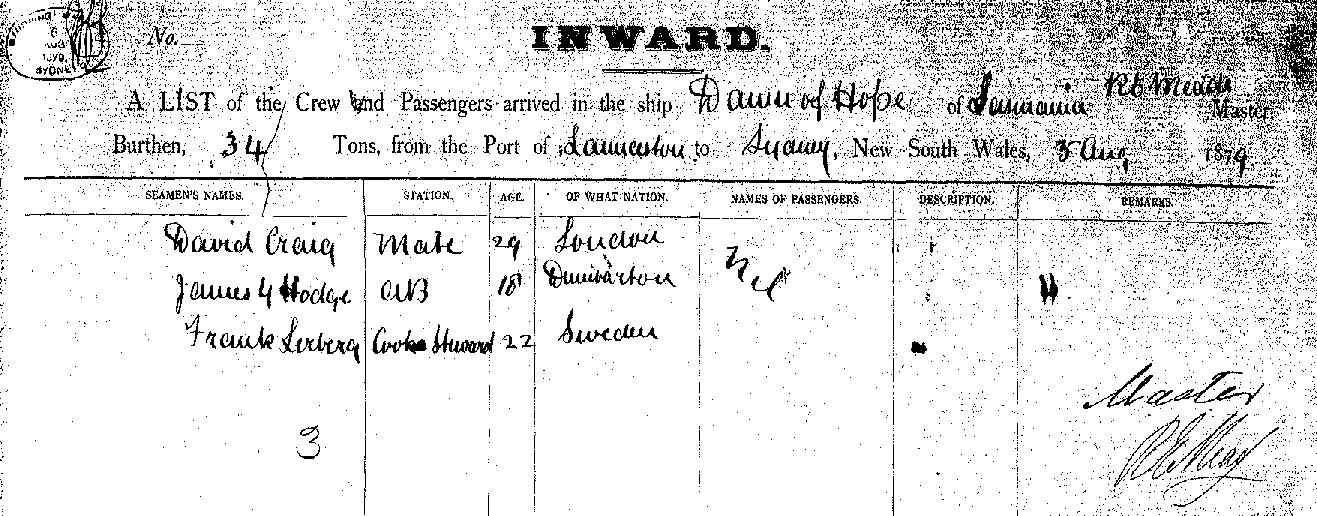 6
AUG
1879
SYDNEY
No.
INWARD.
A LIST of the Crew and Passengers arrived in the ship Dawn of Hope of Tasmania R E Meads Master
Burthen, 34 Tons, from the Port of Launceston to Sydney, New South Wales, 5 Aug 1879
SEAMEN'S NAMES. STATION. AGE. OF WHAT NATION. NAMES OF PASSENGERS. DESCRIPTION. REMARKS.
David Craig Mate 29 London Nil
James Y Hodge AB 18 Dumbarton "
Frank Lerberg Cook & Steward 22 Sweden
Master
3